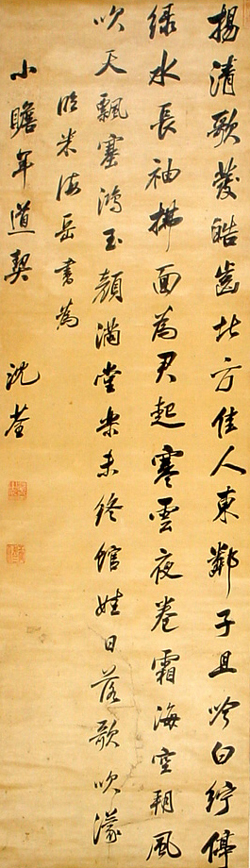 揚清歌發皓齒北方佳人東鄰子且吟白紵停
綠水長袖拂面為君起寒雲夜卷霜海空胡風
吹天飄塞鴻玉顏滿堂樂未終館娃日落歌吹濛
臨米海岳書為
小瞻年道契
沈荃